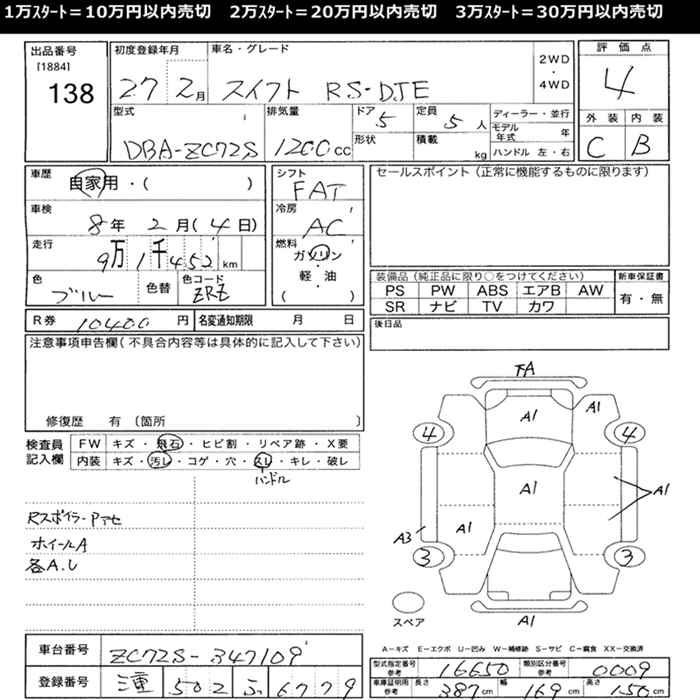 1万ｽﾀｰﾄ＝10万円以内売切　2万ｽﾀｰﾄ＝20万円以内売切　3万ｽﾀｰﾄ＝30万円以内売切
出品番号
[1884]
138
初度登録年月
27 2月
車名・グレード
スイフト RS-DJE
2WD
・
4WD
評価点
4
外装 内装
C B
型式
DBA-ZC72S
排気量
1200cc
ドア
5
形状
定員
5人
積載
kg
ディーラー・並行
モデル年式 年
ハンドル 左・右
車歴
自家用・( )
車検
8年 2月(4日)
走行
9万1千452km
色
ブルー
色替
色コード
ZRZ
シフト
FAT
冷房
AC
燃料
ガソリン
・
軽・油
( )
セールスポイント（正常に機能するものに限ります）
装備品（純正品に限り○をつけてください）
PS PW ABS エアB AW
SR ナビ TV カワ
新車保証書
有・無
後日品
R券 10400円
名変通知期限 月 日
注意事項申告欄（不具合内容等は具体的に記入して下さい）
修復歴 有（箇所 ）
検査員記入欄
FW キズ・飛石・ヒビ割・リペア跡・X要
内装 キズ・汚し・コゲ・穴・スレ・キレ・破レ
ハンドル
Rスポイラー・Pアセ
ホイールA
各A.U
下A
A1
A1
4
4
A1
A1
A1
A3
3
3
スペア
A1
A－キズ E－エクボ U－凹み W－補修跡 S－サビ C－腐食 XX－交換済
車台番号 ZC72S-347109
登録番号 502 ふ 6779
型式指定番号
参考
16650
類別区分番号
参考
0009
車庫証明用
参考
長さ 387cm 幅 169cm 高さ 150cm